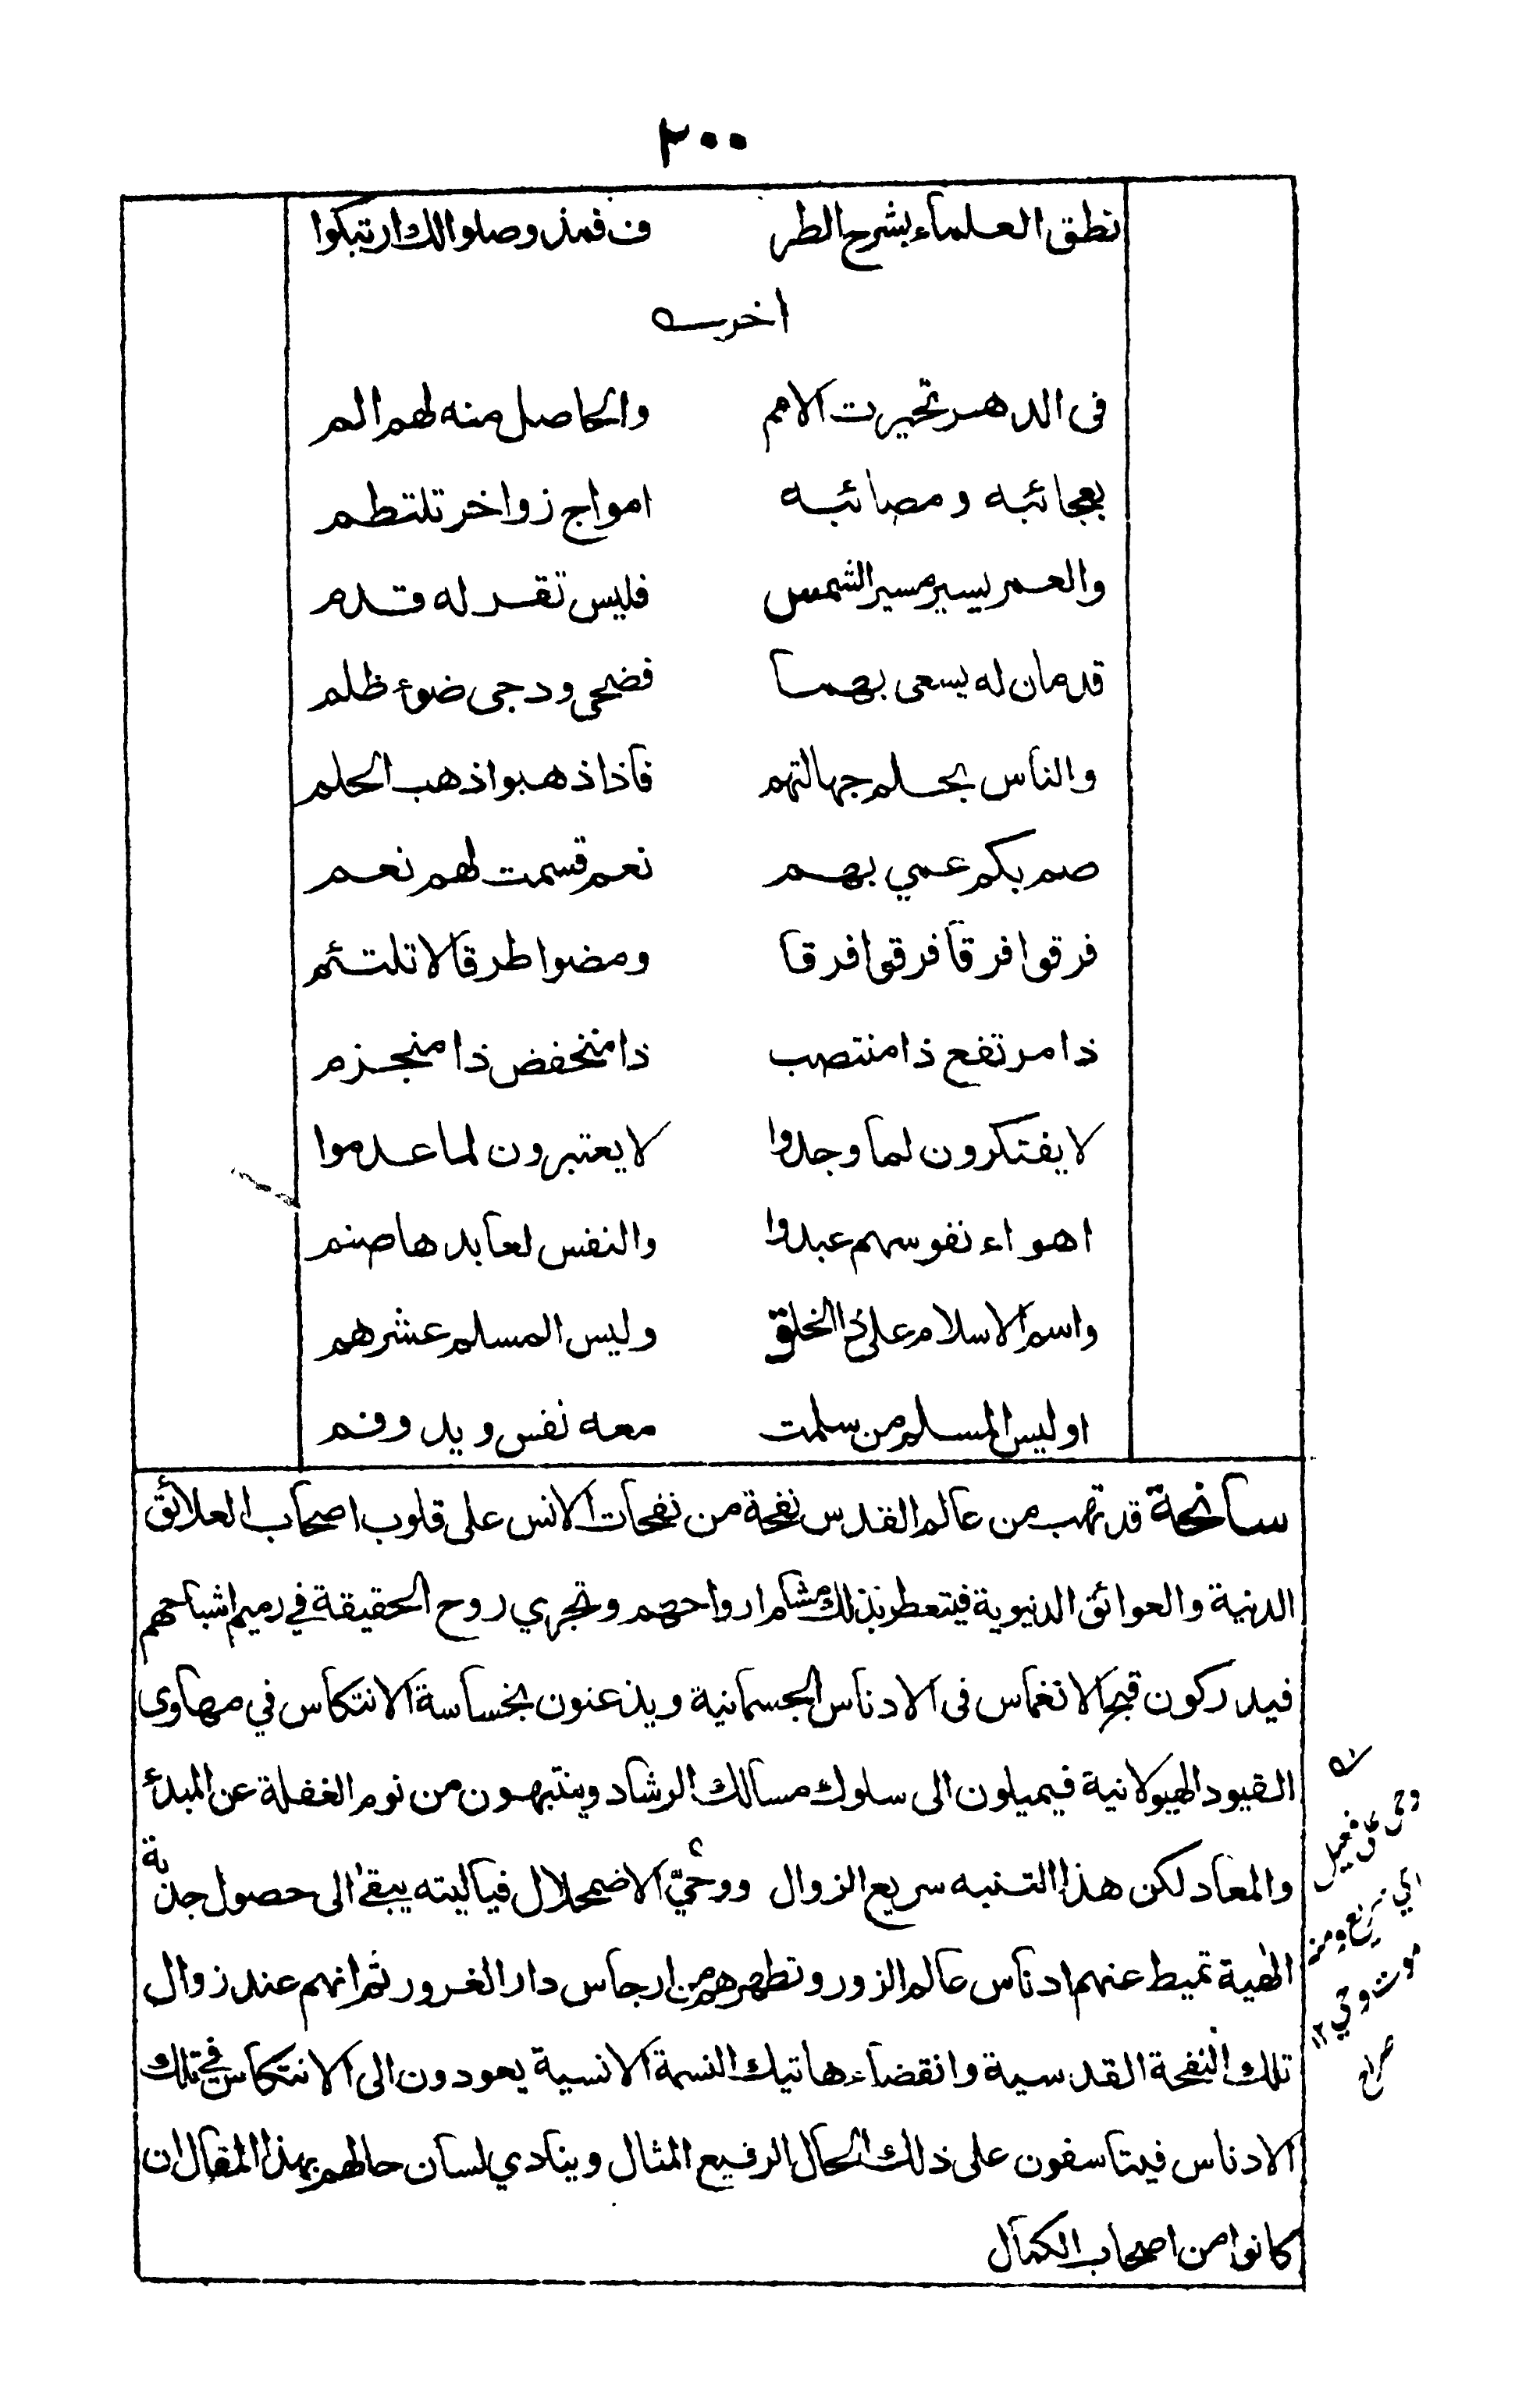 ٢٠٠
نطق العلماء بشرح الطر ف فمذ وصلوا لك ارتبكوا
اخر
فى الدهر تحيرت الامم والحاصل منه لهم الم
بعجائبه ومصائبه امواج زواخر تلتطم
والعمر يسير مسير الشمس فليس تقر له قدم
قدمان له يسعى بهما فضحى ودجى ضوء ظلم
والناس بحلم جهالتهم فاذا ذهبوا ذهب الحلم
صم بكم عمي بهم نعم قسمت لهم نعم
فرقوا فرقا فرقوا فرقا ومضوا طرقا لا تلتئم
ذا مرتفع ذا منتصب ذا منخفض ذا منجزم
لا يفتكرون لما وجدوا لا يعتبرون لما عدموا
اهواء نفوسهم عبدوا والنفس لعابدها صنم
واسم الاسلام على ذا الخلق وليس المسلم عشرهم
او ليس المسلم من سلمت معه نفس ويد وفم
سانحة قد تهب من عالم القدس نفحة من نفحات الانس على قلوب اصحاب العلائق
الدنية والعوائق الدنيوية فيتعطر بذلك مشام ارواحهم وتجري روح الحقيقة في رميم اشباحهم
فيدركون قبح الانغماس فى الادناس الجسمانية ويذعنون بخساسة الانتكاس في مهاوى
القيود الهيولانية فيميلون الى سلوك مسالك الرشاد وينتبهون من نوم الغفلة عن المبدأ
والمعاد لكن هذا التنبه سريع الزوال ووحيّ الاضمحلال فيا ليته يبقى الى حصول جذبة
الهية تميط عنهم ادناس عالم الزور وتطهرهم من ارجاس دار الغرور ثم انهم عند زوال
تلك النفحة القدسية وانقضاء هاتيك النسمة الانسية يعودون الى الانتكاس في تلك
الادناس فيتاسفون على ذلك الحال الرفيع المثال وينادي لسان حالهم بهذا المقال ان
كانوا من اصحاب الكمال
وحى على فعيل
اي سريع ومنه
موت وحي ١٢
صراح